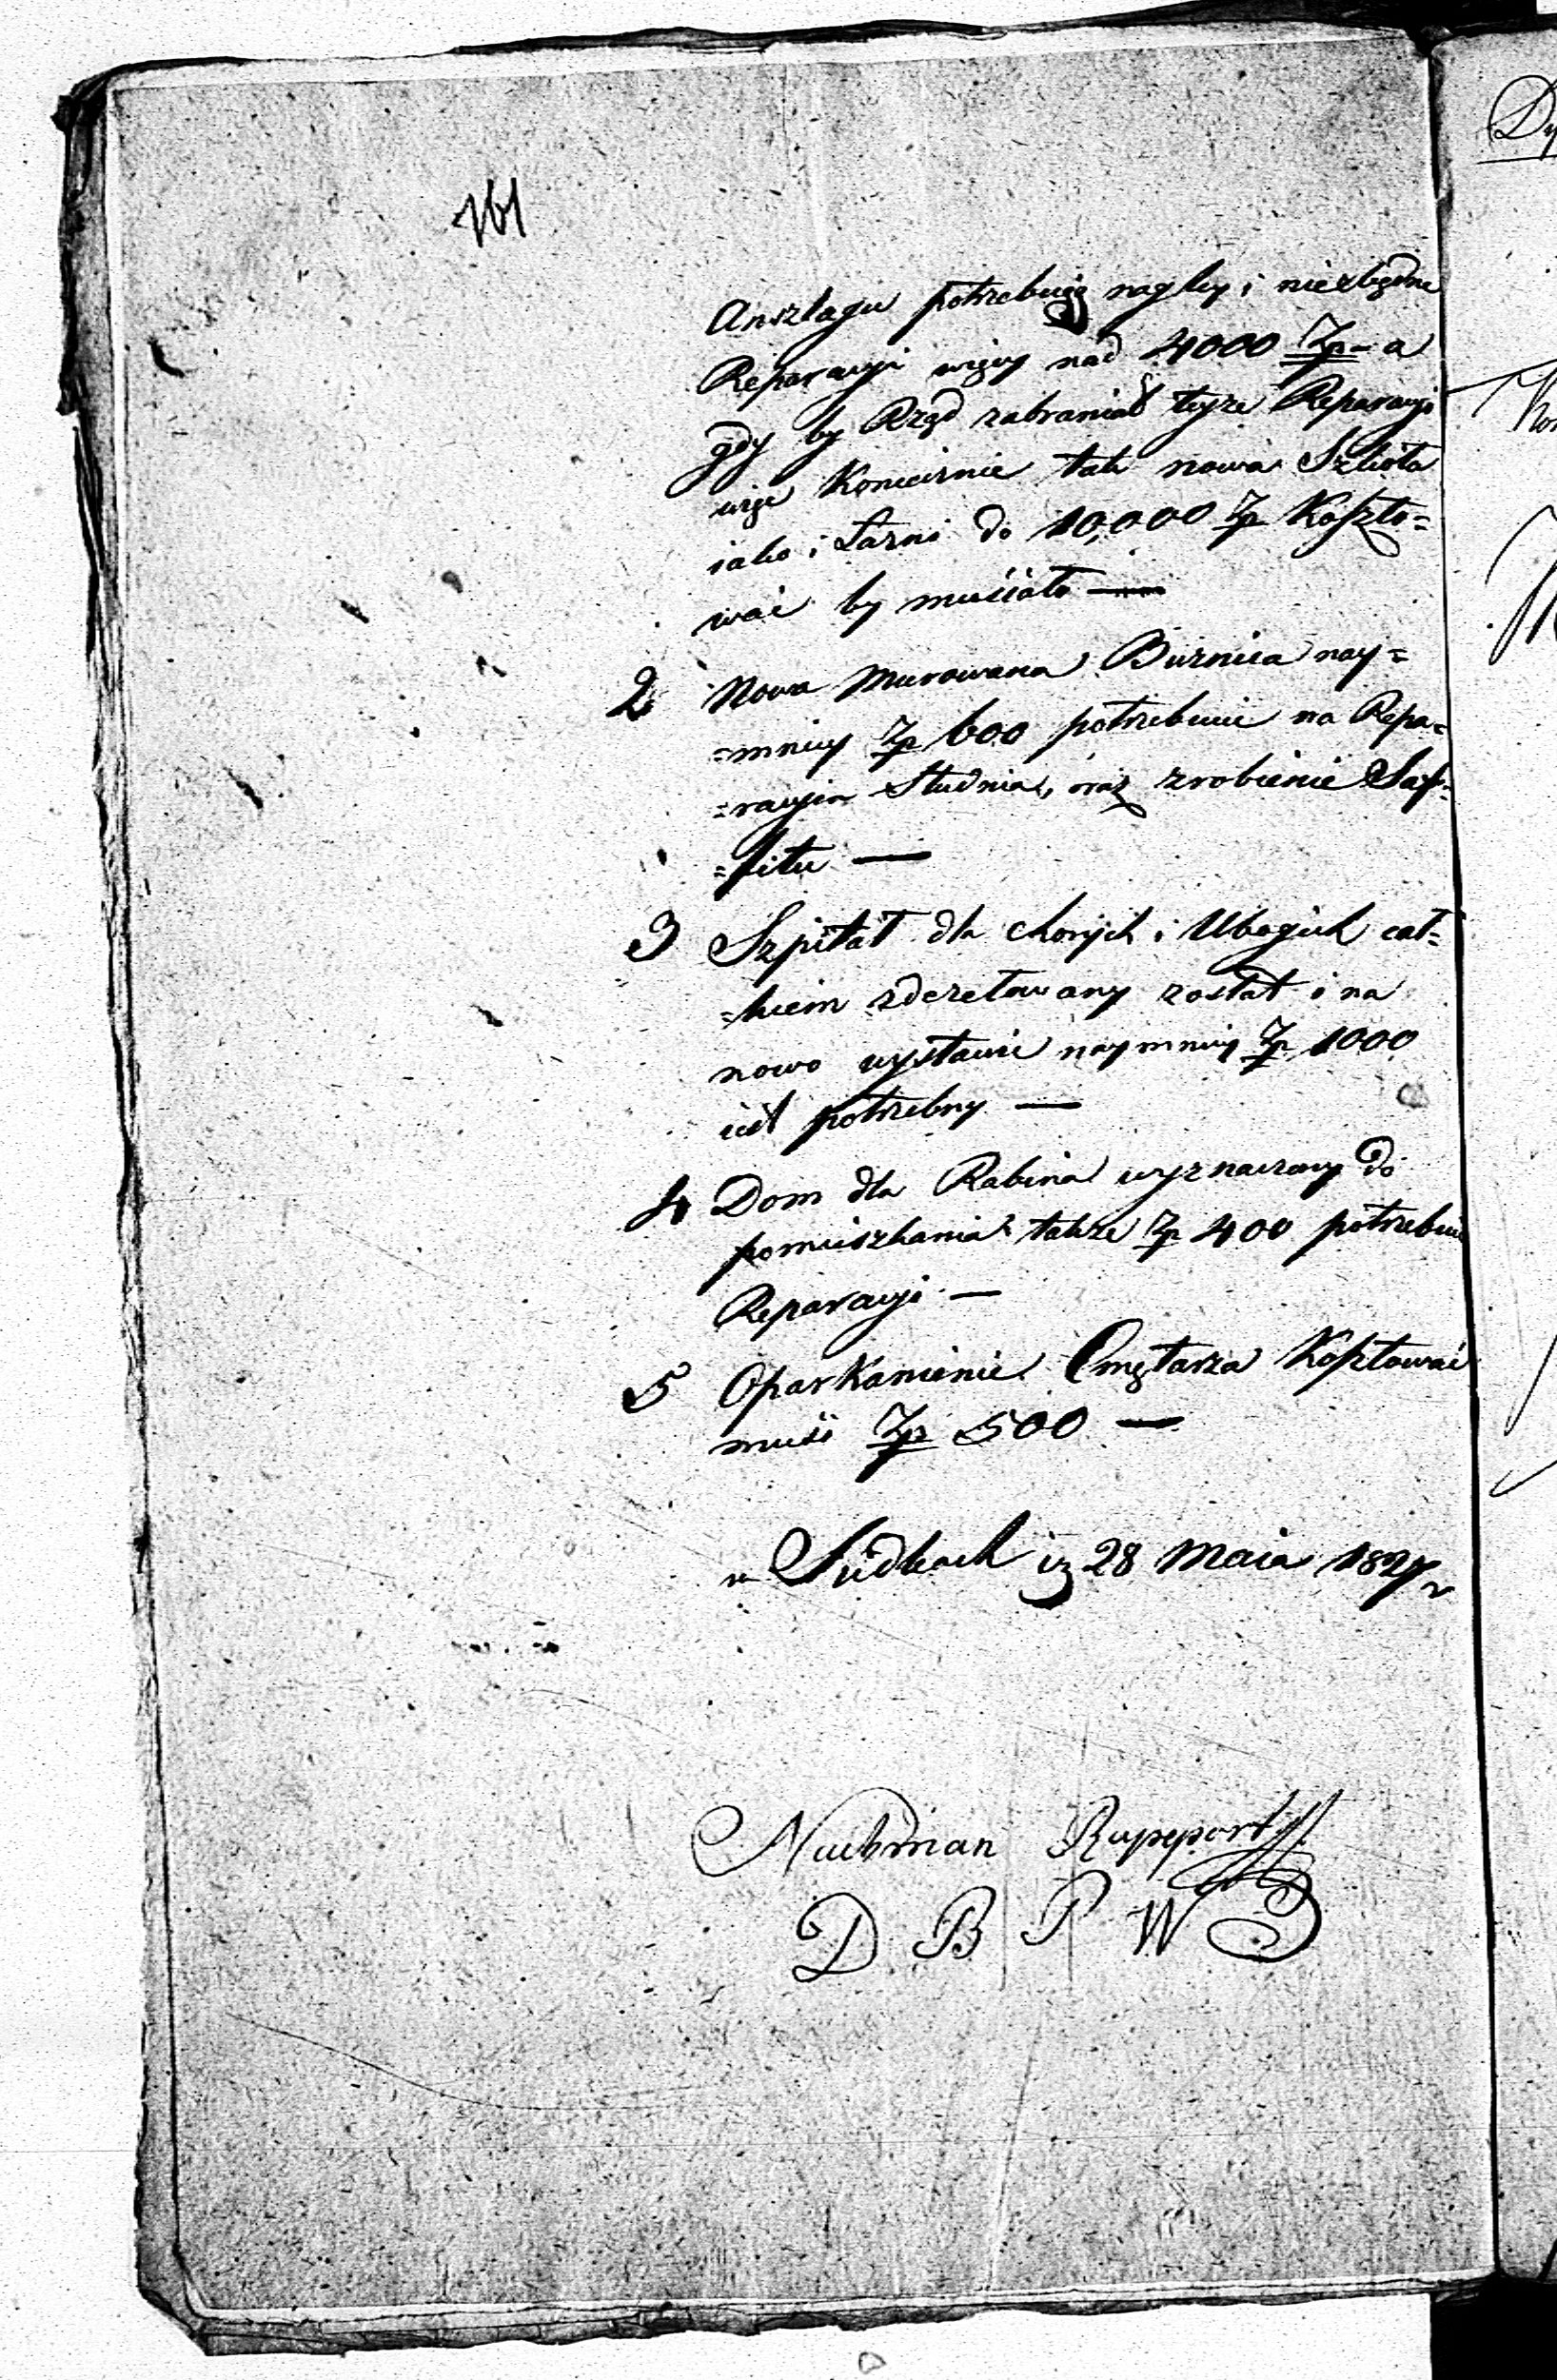 161
Anszlagu potrzebuję nagłey i niezbędne
Reparacyi więcy nad 4000 Zp - a
gdy by Rząd zabraniał teyże Reparacyi
więc Koniecznie tak nowa Szkoła
iako i Łazni do 10,000 Zp Koszto=
wać by musiało —
2 Nowa Murowana Bużnica nay=
=mniey Zp 600 potrzebuie na Repa=
=racyią Studnia, oraz zrobienie Suf=
=fitu —
3 Szpitał dla chorych i Ubogich cał=
=kiem zdezelowany został i na
nowo wystawić naymniey Zp 1000
iest potrzebny —
4 Dom dla Rabina wyznaczony do
pomieszkania także Zp 400 potrzebuie
Reparacyi —
5 Oparkanienie Cmętarza Kosztować
musi Zp 500 —
w Siedlcach 28 Maia 1827 r
Nuchman Rappeport
D B P W